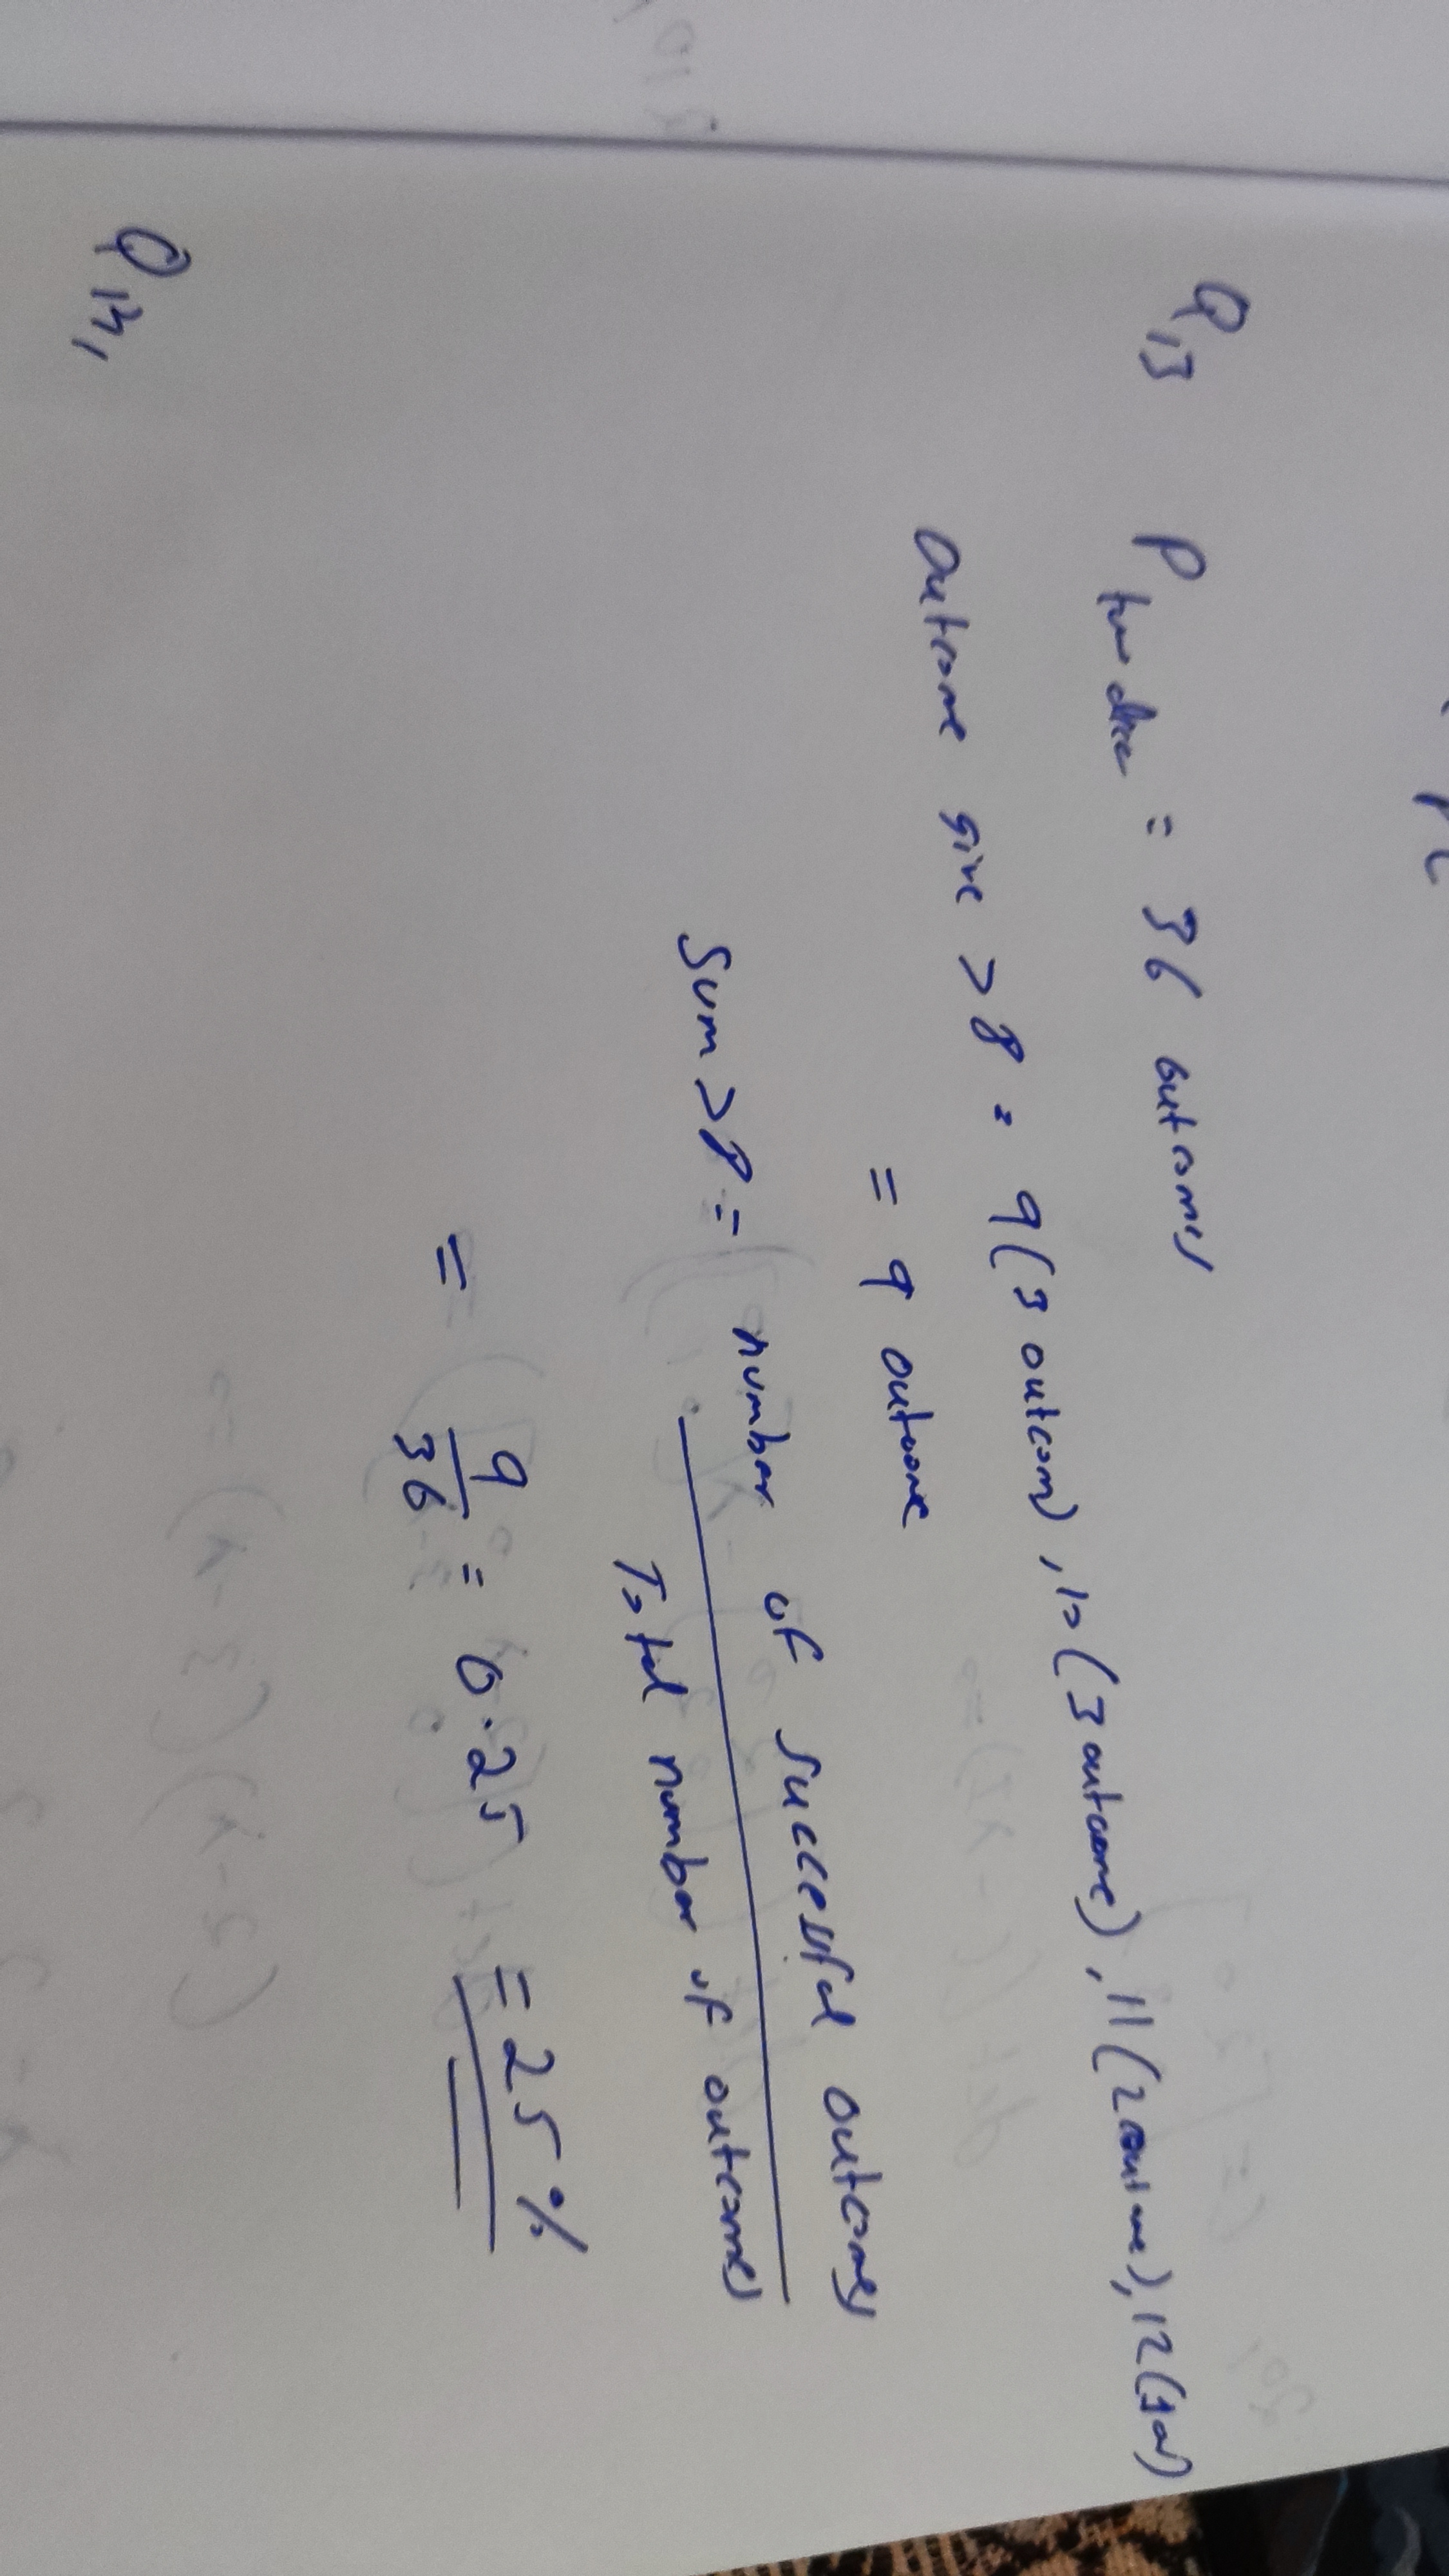 Q13 P two dice = 36 outcomes
Outcome give > 8 = 9 (3 outcom), 10 (3 outcome), 11 (2 outcome), 12 (1 out)
= 9 outcome
Sum > 8 = number of successful outcomes
Total number of outcomes
= 9/36 = 0.25 = 25%